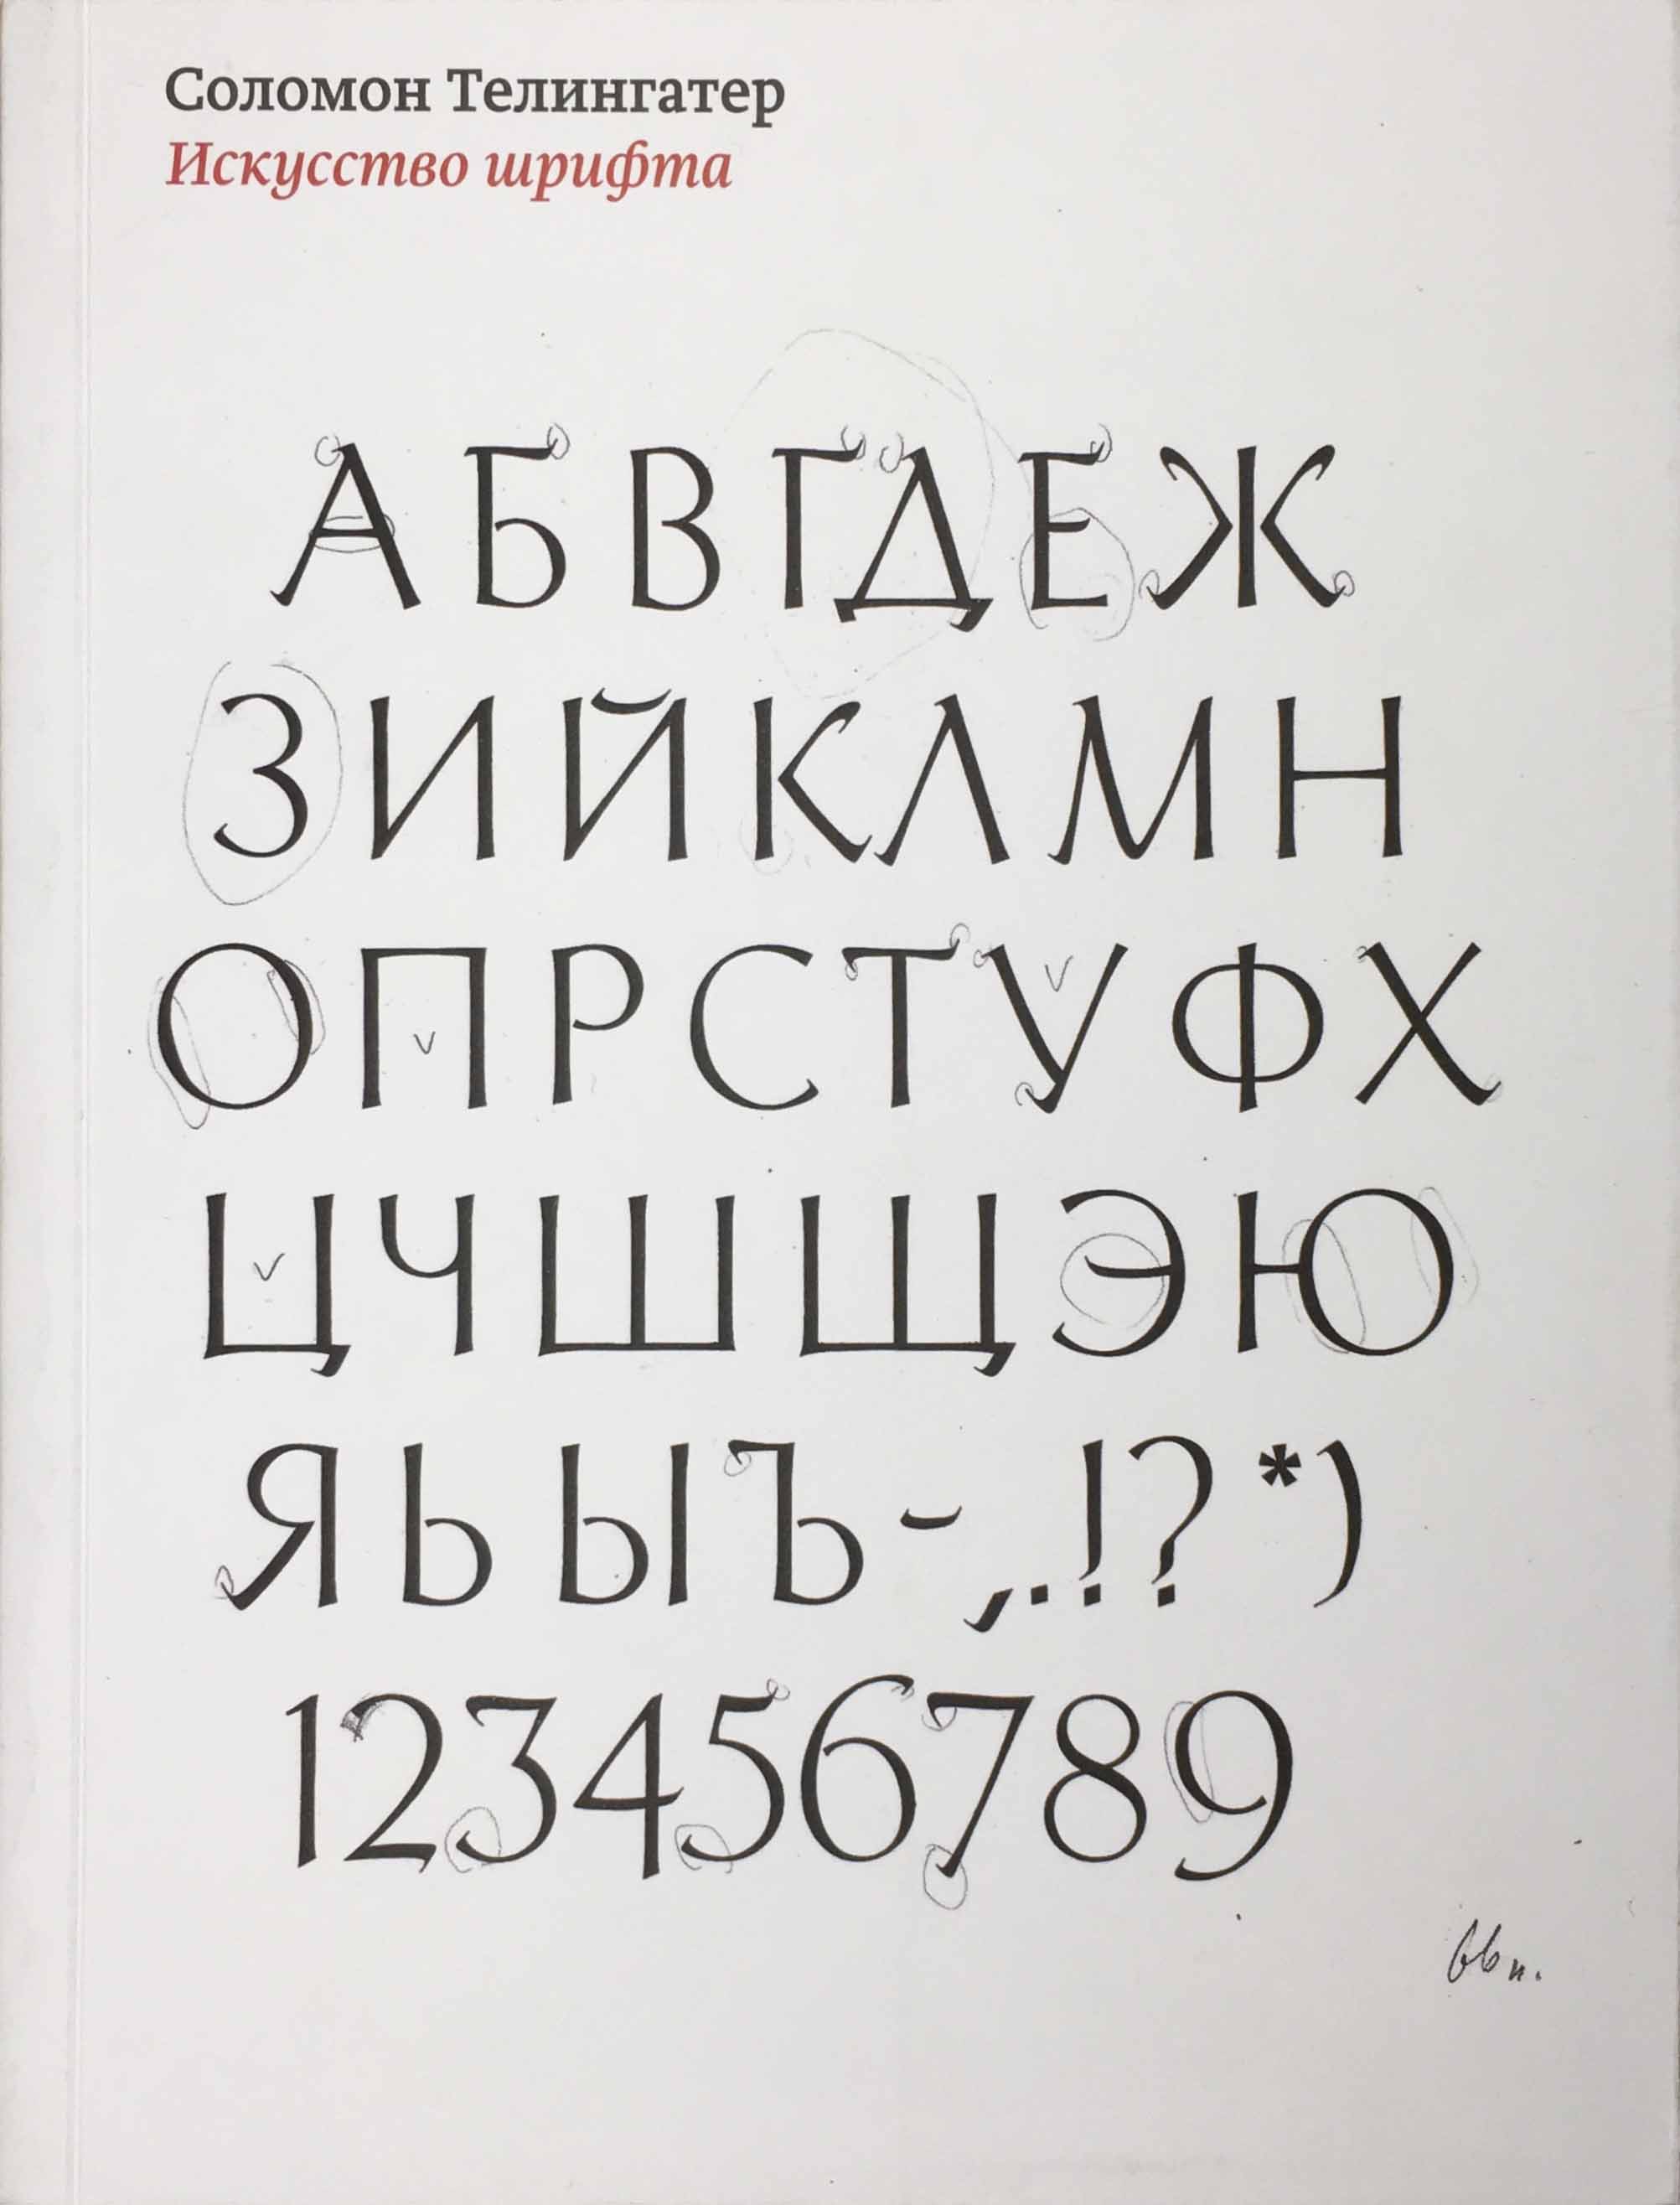 Соломон Телингатер
Искусство шрифта
АБВГДЕЖ
ЗИЙКЛМН
ОПРСТУФХ
ЦЧШЩЭЮ
ЯЬЫЪ-,.!?*)
123456789